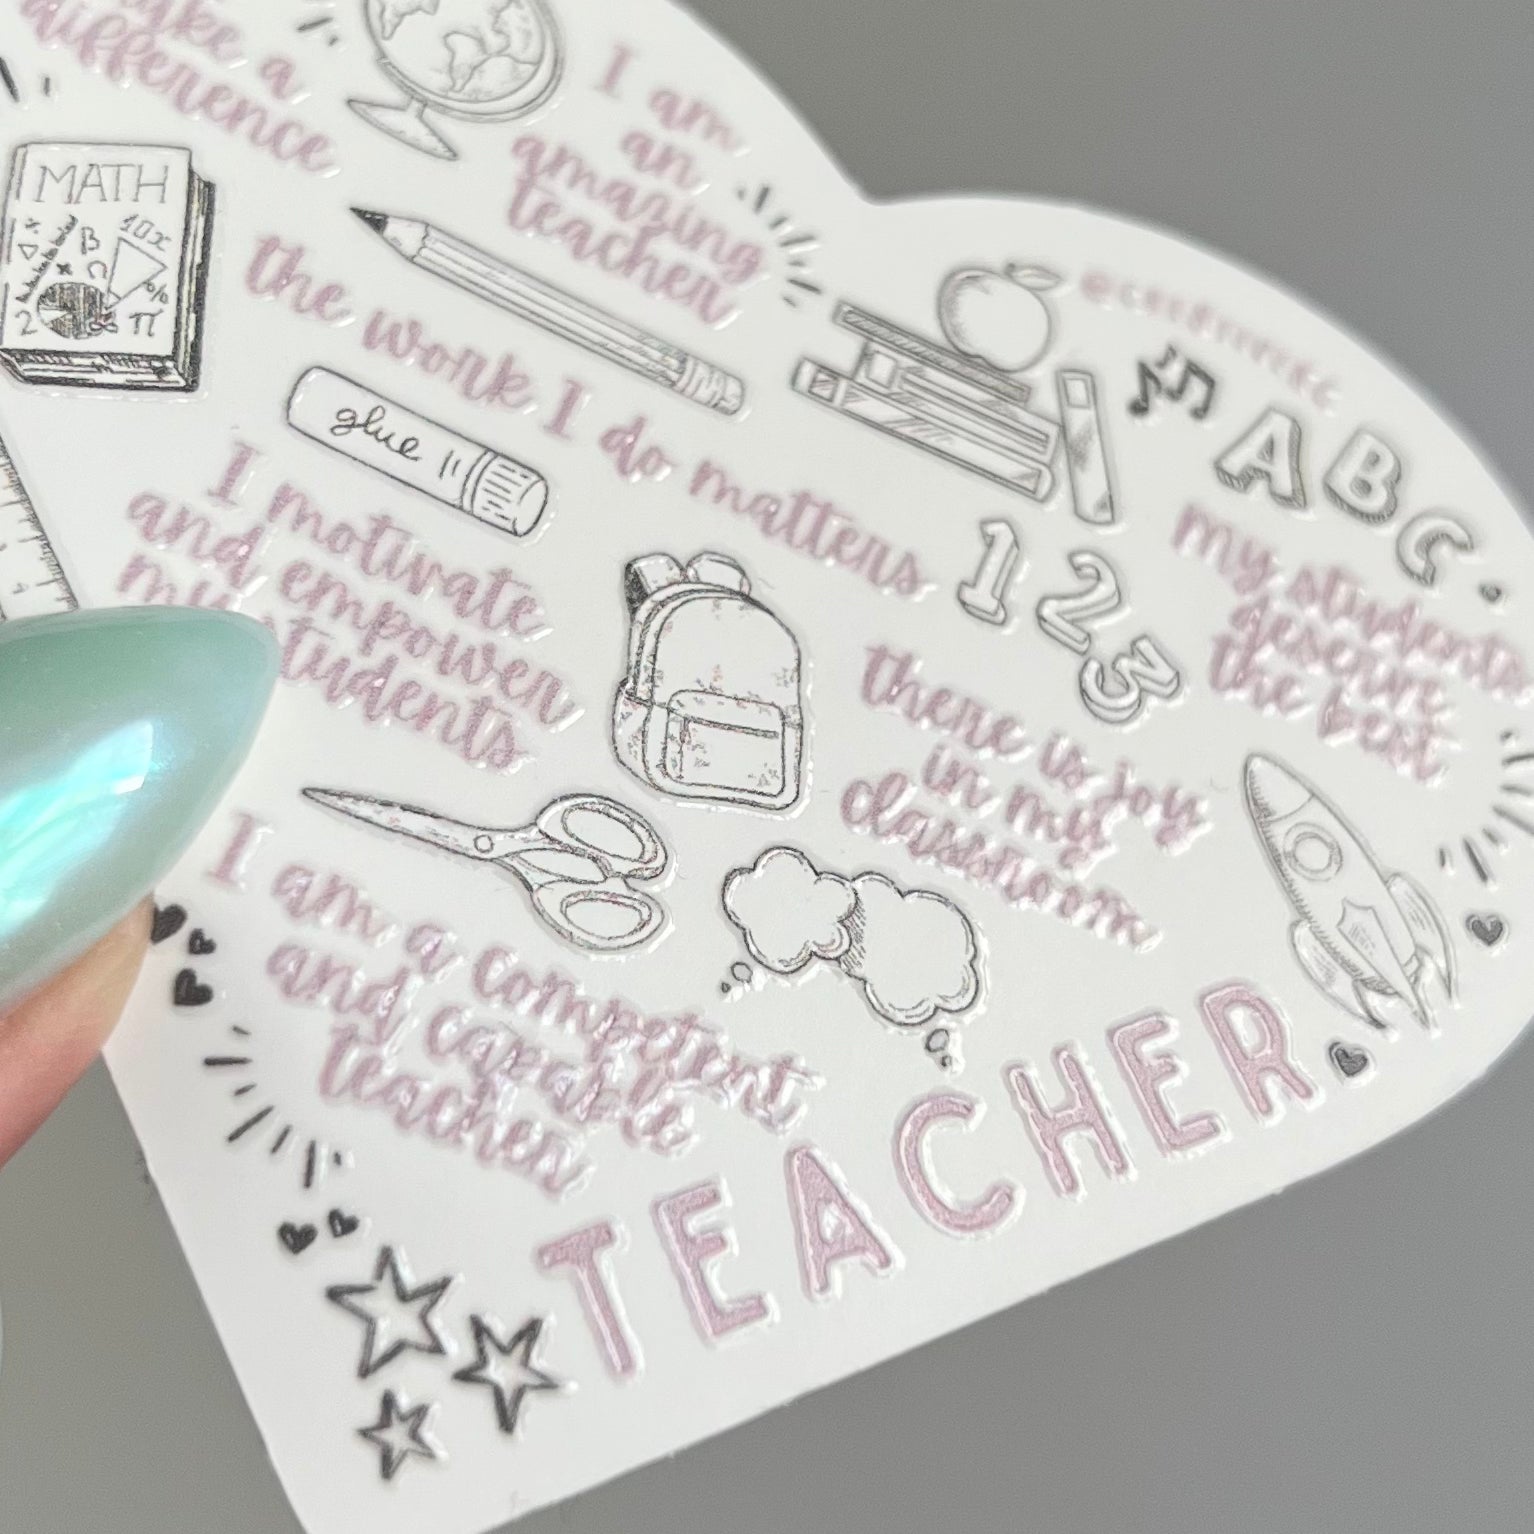 make a
difference
I am
an
amazing
teacher
MATH
β
10x
%
2
π
the work I do matters
glue
ABC
123
I motivate
and empower
my students
my students
deserve
the best
there is joy
in my
classroom
I am a competent
and capable
teacher
TEACHER